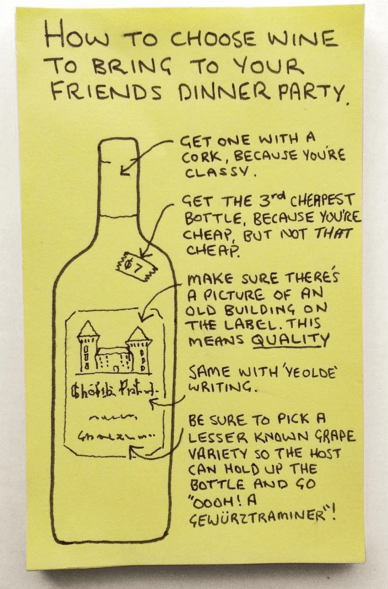 HOW TO CHOOSE WINE
TO BRING TO YOUR
FRIENDS DINNER PARTY.
GET ONE WITH A
CORK, BECAUSE YOU'RE
CLASSY.
GET THE 3rd CHEAPEST
BOTTLE, BECAUSE YOU'RE
CHEAP, BUT NOT THAT
CHEAP.
$7
MAKE SURE THERE'S
A PICTURE OF AN
OLD BUILDING ON
THE LABEL. THIS
MEANS QUALITY
SAME WITH 'YEOLDE'
WRITING.
BE SURE TO PICK A
LESSER KNOWN GRAPE
VARIETY SO THE HOST
CAN HOLD UP THE
BOTTLE AND GO
"OOOH! A
GEWÜRZTRAMINER"!